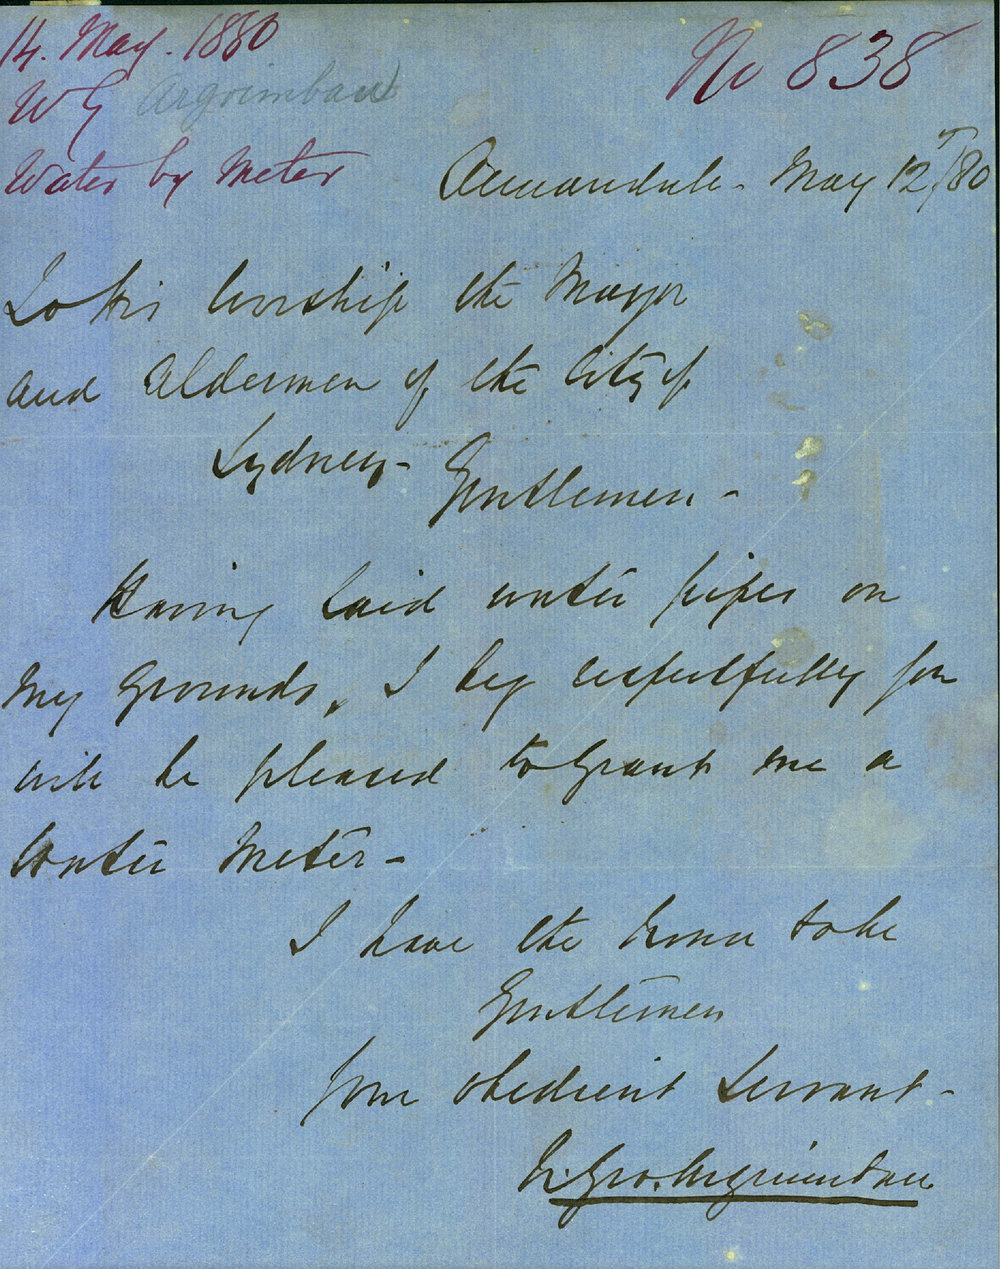 14. May. 1880
No 838
W G Argoimbau
Water by Meter
Annandale - May 12/80
To His Worship the Mayor
and Aldermen of the City of
Sydney -
Gentlemen -
Having laid water pipes on
my grounds, I beg respectfully you
will be pleased to grant me a
Water Meter -
I have the honor to be
Gentlemen
your obedient Servant -
W. Geo. Argoimbau